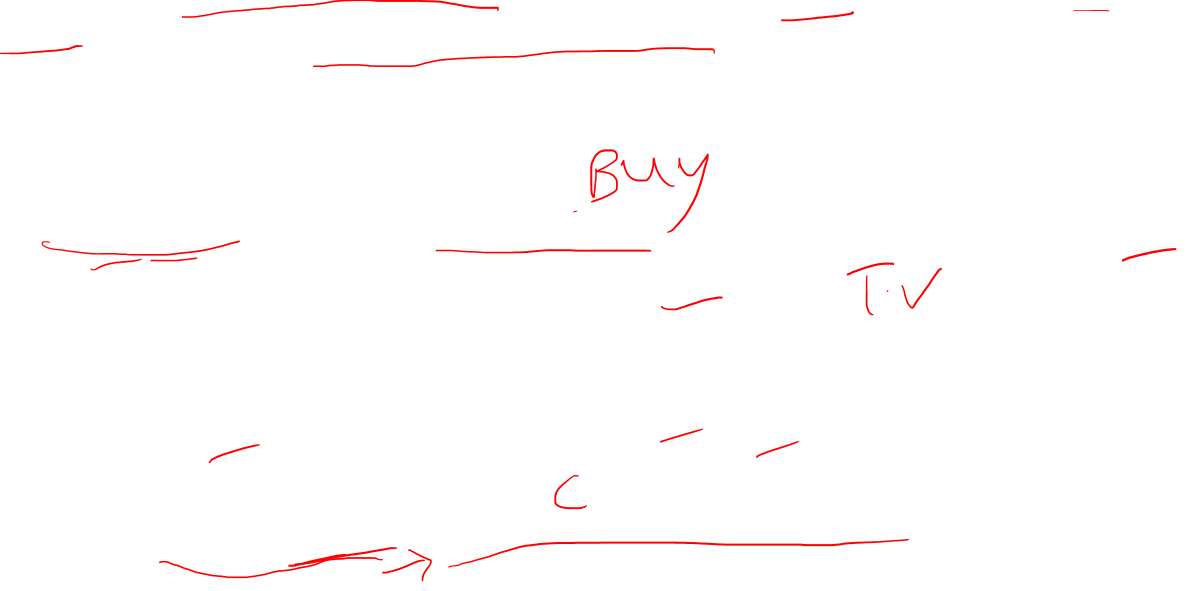 Buy
T.V
C